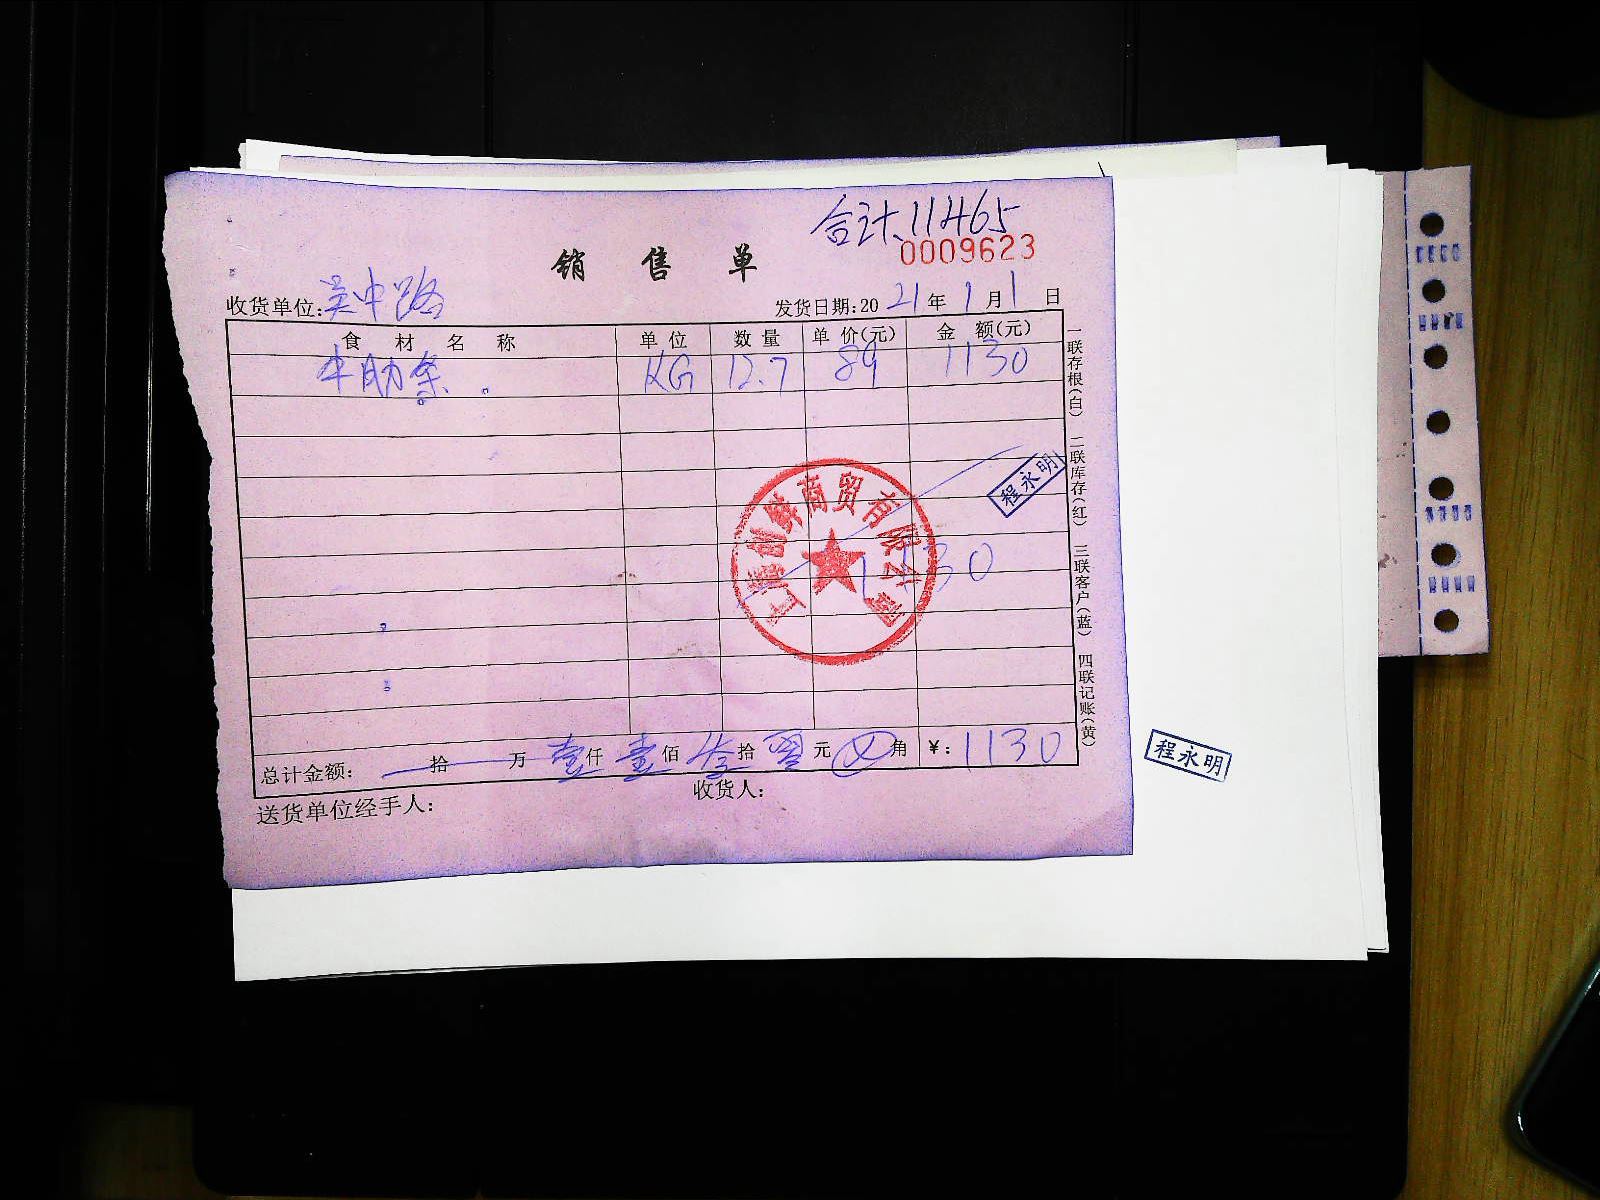 合计.11465
0009623
销售单
收货单位:吴中路
发货日期:2021年1月1日
食材名称 单位 数量 单价(元) 金额(元)
牛肋条 KG 12.7 89 1130
程永明
上海创鲜商贸有限公司
1130
总计金额: 拾 万 壹仟 壹佰 叁拾 零元 角 ¥:1130
送货单位经手人: 收货人:
一联存根(白) 二联库存(红) 三联客户(蓝) 四联记账(黄)
程永明